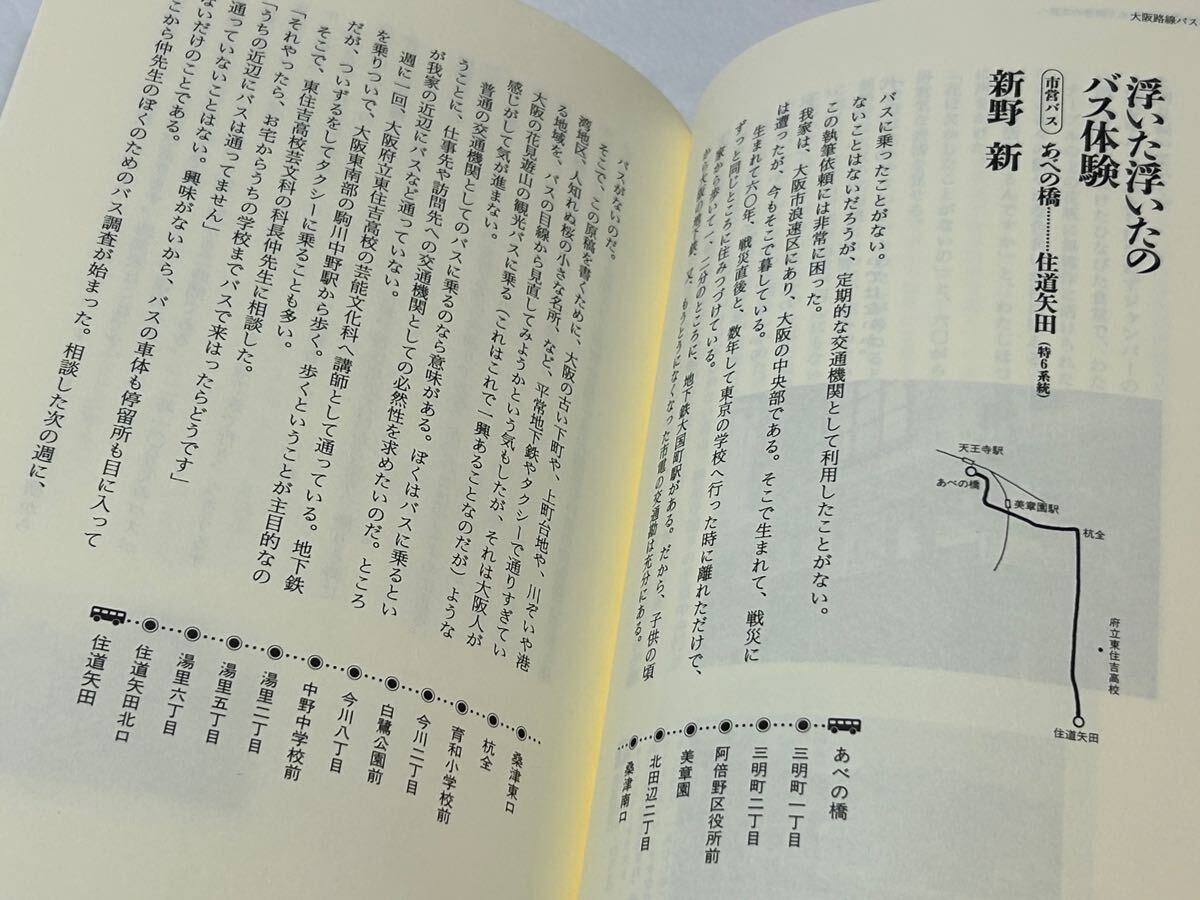 大阪路線バス
浮いた浮いたの
バス体験
市営バス あべの橋…………住道矢田（特6系統）
新野 新
天王寺駅
あべの橋
美章園駅
杭全
府立東住吉高校
住道矢田
バスに乗ったことがない。
ないことはないだろうが、定期的な交通機関として利用したことがない。
この執筆依頼には非常に困った。
我家は、大阪市浪速区にあり、大阪の中央部である。そこで生まれて、戦災に
は遭ったが、今もそこで暮している。
生まれて六〇年、戦災直後と、数年して東京の学校へ行った時に離れただけで、
ずっと同じところに住みつづけている。
家から歩いて、一、二分のところに、地下鉄大国町駅がある。だから、子供の頃
もうとうになくなった市電の交通勘は充分にある。
あべの橋
三明町一丁目
三明町二丁目
阿倍野区役所前
美章園
北田辺二丁目
桑津南口
バスがないのだ。
そこで、この原稿を書くために、大阪の古い下町や、上町台地や、川ぞいや港
湾地区、人知れぬ桜の小さな名所、など、平常地下鉄やタクシーで通りすぎてい
る地域を、バスの目線から見直してみようかという気もしたが、それは大阪人が
大阪の花見遊山の観光バスに乗る（これはこれで一興あることなのだが）ような
感じがして気が進まない。
普通の交通機関としてのバスに乗るのなら意味がある。ぼくはバスに乗るとい
うことに、仕事先や訪問先への交通機関としての必然性を求めたいのだ。ところ
が我家の近辺にバスなど通っていない。
週に一回、大阪府立東住吉高校の芸能文化科へ講師として通っている。地下鉄
を乗りついで、大阪東南部の駒川中野駅から歩く。歩くということが主目的なの
だが、ついずるをしてタクシーに乗ることも多い。
そこで、東住吉高校芸文科の科長仲先生に相談した。
「それやったら、お宅からうちの学校までバスで来はったらどうです」
「うちの近辺にバスは通ってません」
通っていないことはない。興味がないから、バスの車体も停留所も目に入って
ないだけのことである。
こから仲先生のぼくのためのバス調査が始まった。相談した次の週に、
桑津東口
杭全
育和小学校前
今川二丁目
今川八丁目
白鷺公園前
中野中学校前
湯里二丁目
湯里五丁目
湯里六丁目
住道矢田北口
住道矢田